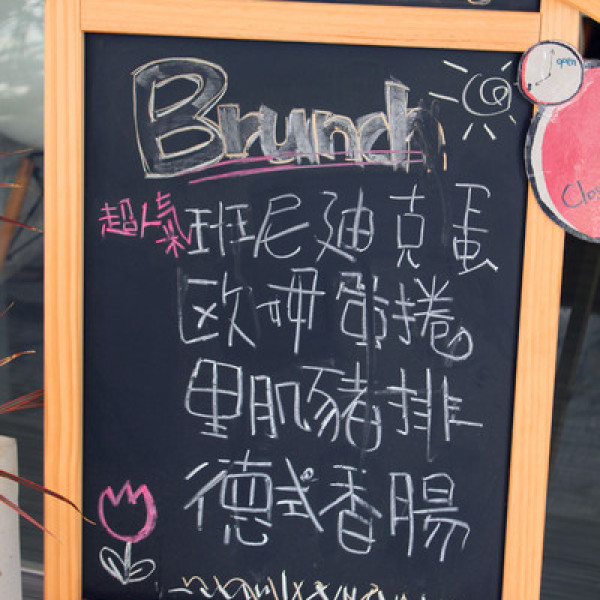 Brunch
open
超人氣 班尼迪克蛋
Clos
歐姆蛋捲
里肌豬排
德式香腸